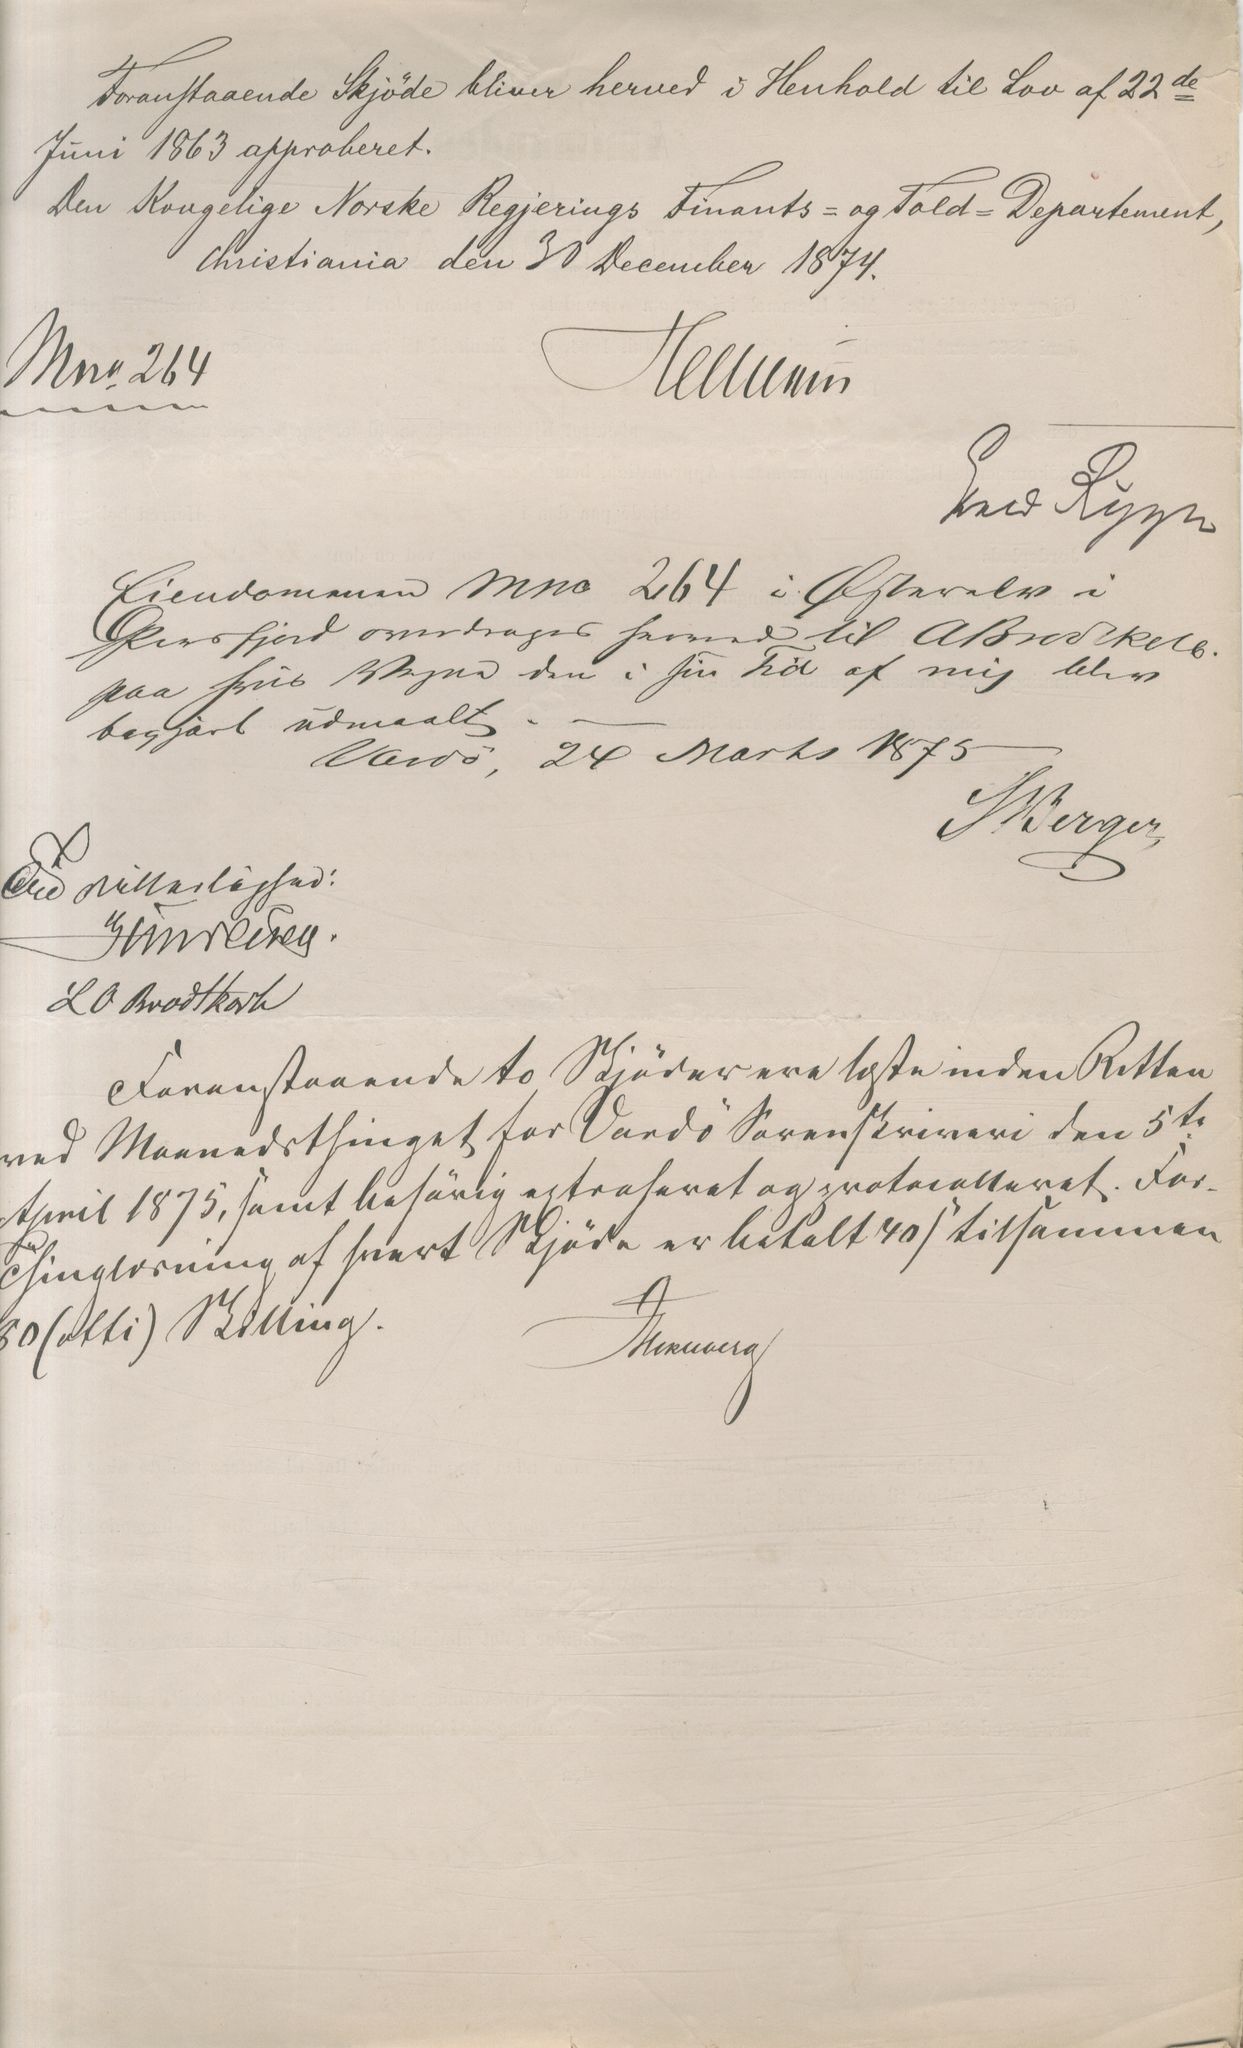 Foranstaaende Skjöde bliver herved i Henhold til Lov af 22de
Juni 1863 approberet.
Den Kongelige Norske Regjerings Finants= og Told=Departement,
Christiania den 30 December 1874.
Mno 264
Eiendommen Mno 264 i Østerelv i
Persfjord overdrages herved til
paa hvis Vegne den i sin Tid af mig blev
begjært udmaalt. —
Vardö, 24 Marts 1875
SBerger
Til Vitterlighed:
L O Brodtkorb
Foranstaaende to Skjöder ere læste inden Retten
ved Maanedsthinget for Vardö Sorenskriveri den 5te
April 1875, samt behörig extraheret og protocolleret. For
Thinglæsning af hvert Skjöde er betalt 40 s tilsammen
80 (otti) Skilling.